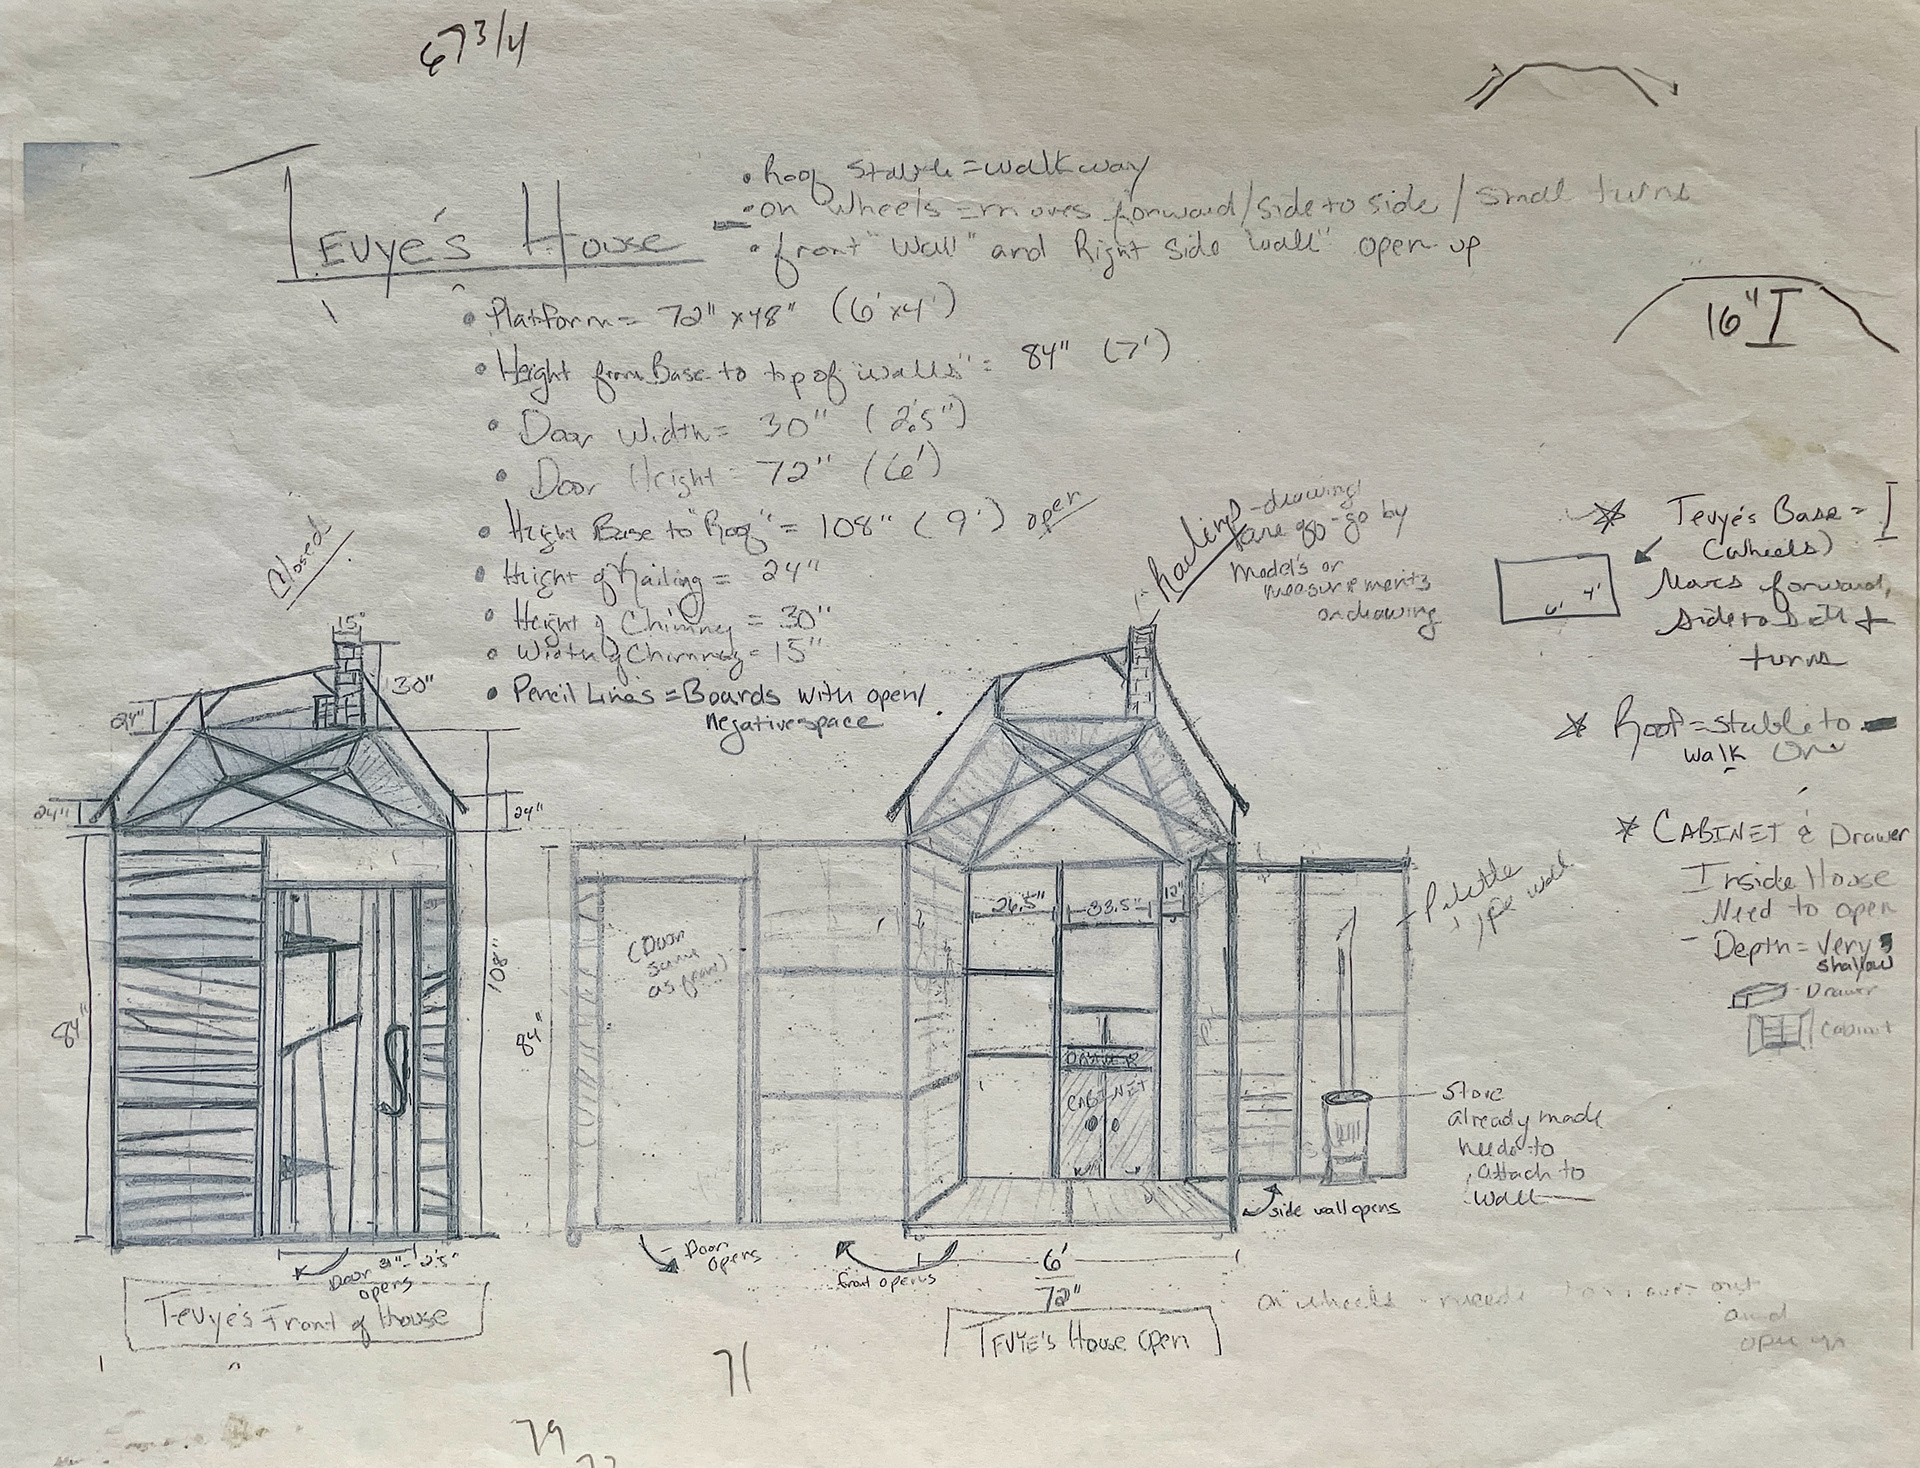 67 3/4
TEVYE'S HOUSE
• Roof stable = walkway
• on wheels = moves forward/side to side/small turns
• front "wall" and Right side "wall" open up
• Platform = 72" x 48" (6' x 4')
• Height from Base to top of "walls" = 84" (7')
• Door Width = 30" (2.5")
• Door Height = 72" (6')
• Height Base to "Roof" = 108" (9') open
• Height of Railing = 24"
• Height of Chimney = 30"
• Width of Chimney = 15"
• Pencil Lines = Boards with open/
negative space
16"
Closed
Railing - drawing
go by
Models or
measurements
on drawing
* Tevye's Base =
(wheels)
Moves forward,
side to side +
turns
6' 4'
* Roof = stable to
walk on
* CABINET & Drawer
Inside House
Need to open
- Depth = very
shallow
- Drawer
Cabinet
15"
30"
24"
24"
24"
84"
108"
Door 31" - 2.5"
opens
Tevye's Front of House
84"
(Door
same
as front)
Door
opens
front opens
26.5"
33.5"
12"
DRAWER
CABINET
6'
72"
TEVYE'S House Open
Palette
type wall
Stove
already made
needs to
attach to
wall
side wall opens
on wheels - needs to move out
and
open up
71
79